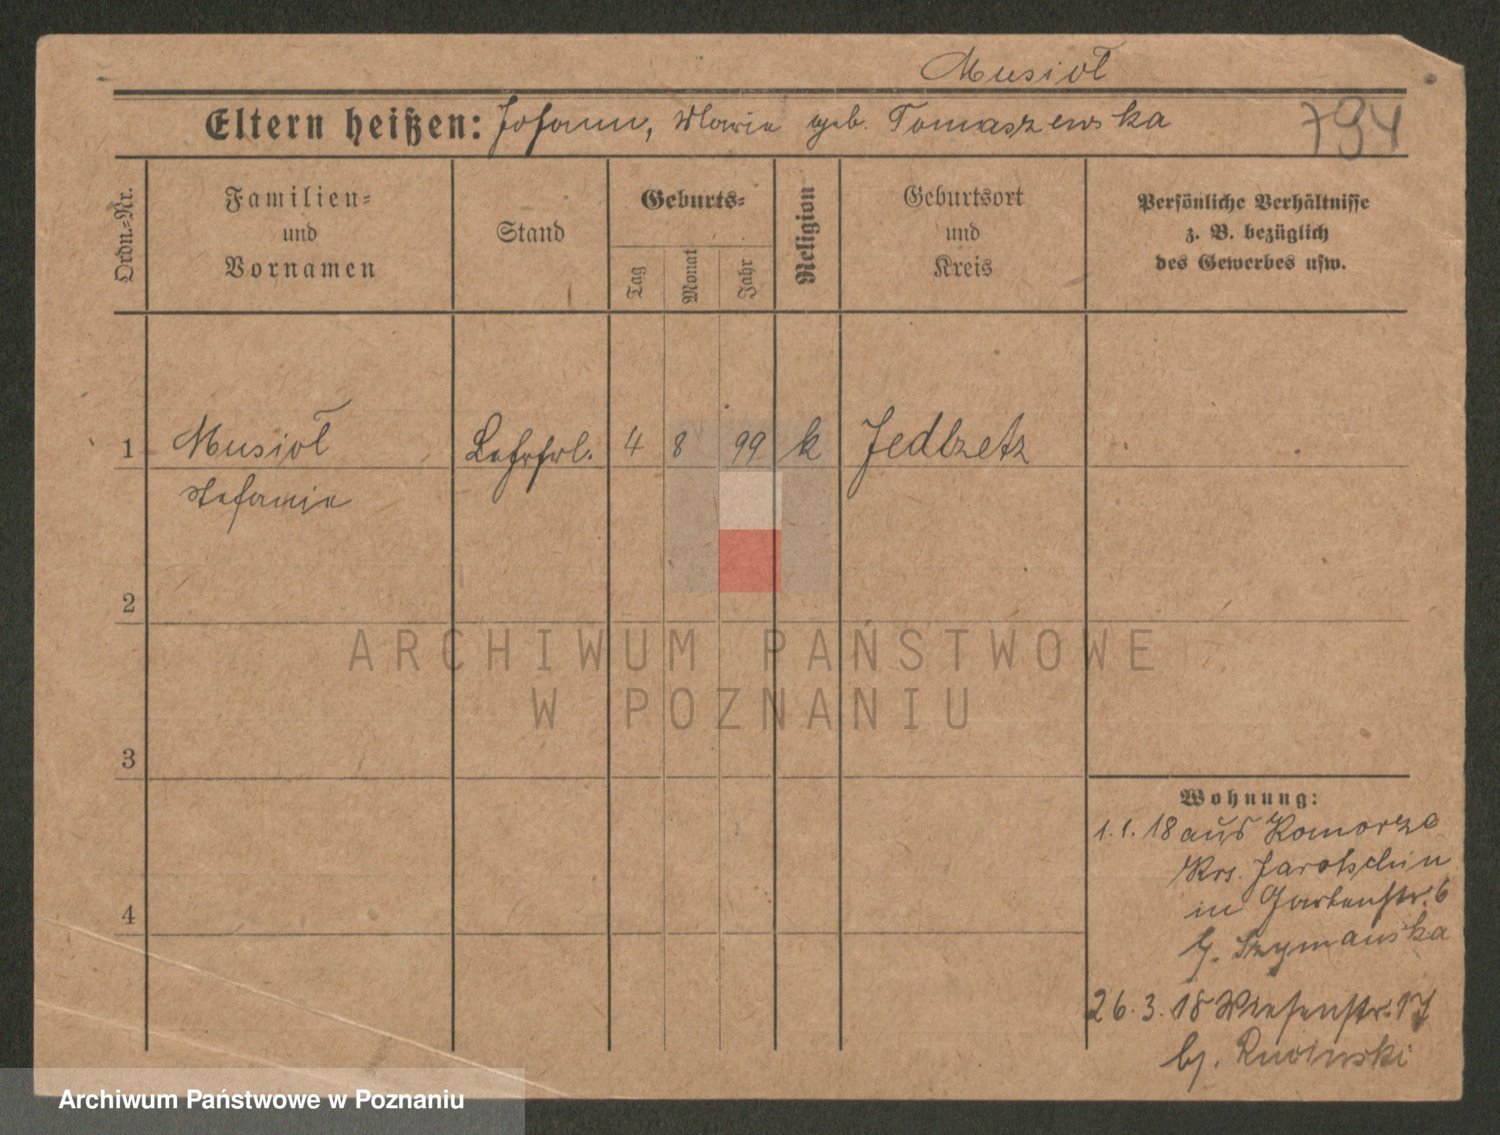 Musioł
Eltern heißen: Johann, Maria geb. Tomaszewska
794
Ordn.-Nr.
Familien-
und
Vornamen
Stand
Geburts-
Tag
Monat
Jahr
Religion
Geburtsort
und
Kreis
Persönliche Verhältnisse
z. B. bezüglich
des Gewerbes usw.
1 Musioł Lehrfrl. 4 8 99 k
Stefanie
2
3
4
Wohnung:
1.1.18 aus Komorze
Krs. Jarotschin
in Gartenstr. 6
b. Szymanska
26.3.18 Wiesenstr. 17
bj.
ARCHIWUM PAŃSTWOWE
W POZNANIU
Archiwum Państwowe w Poznaniu